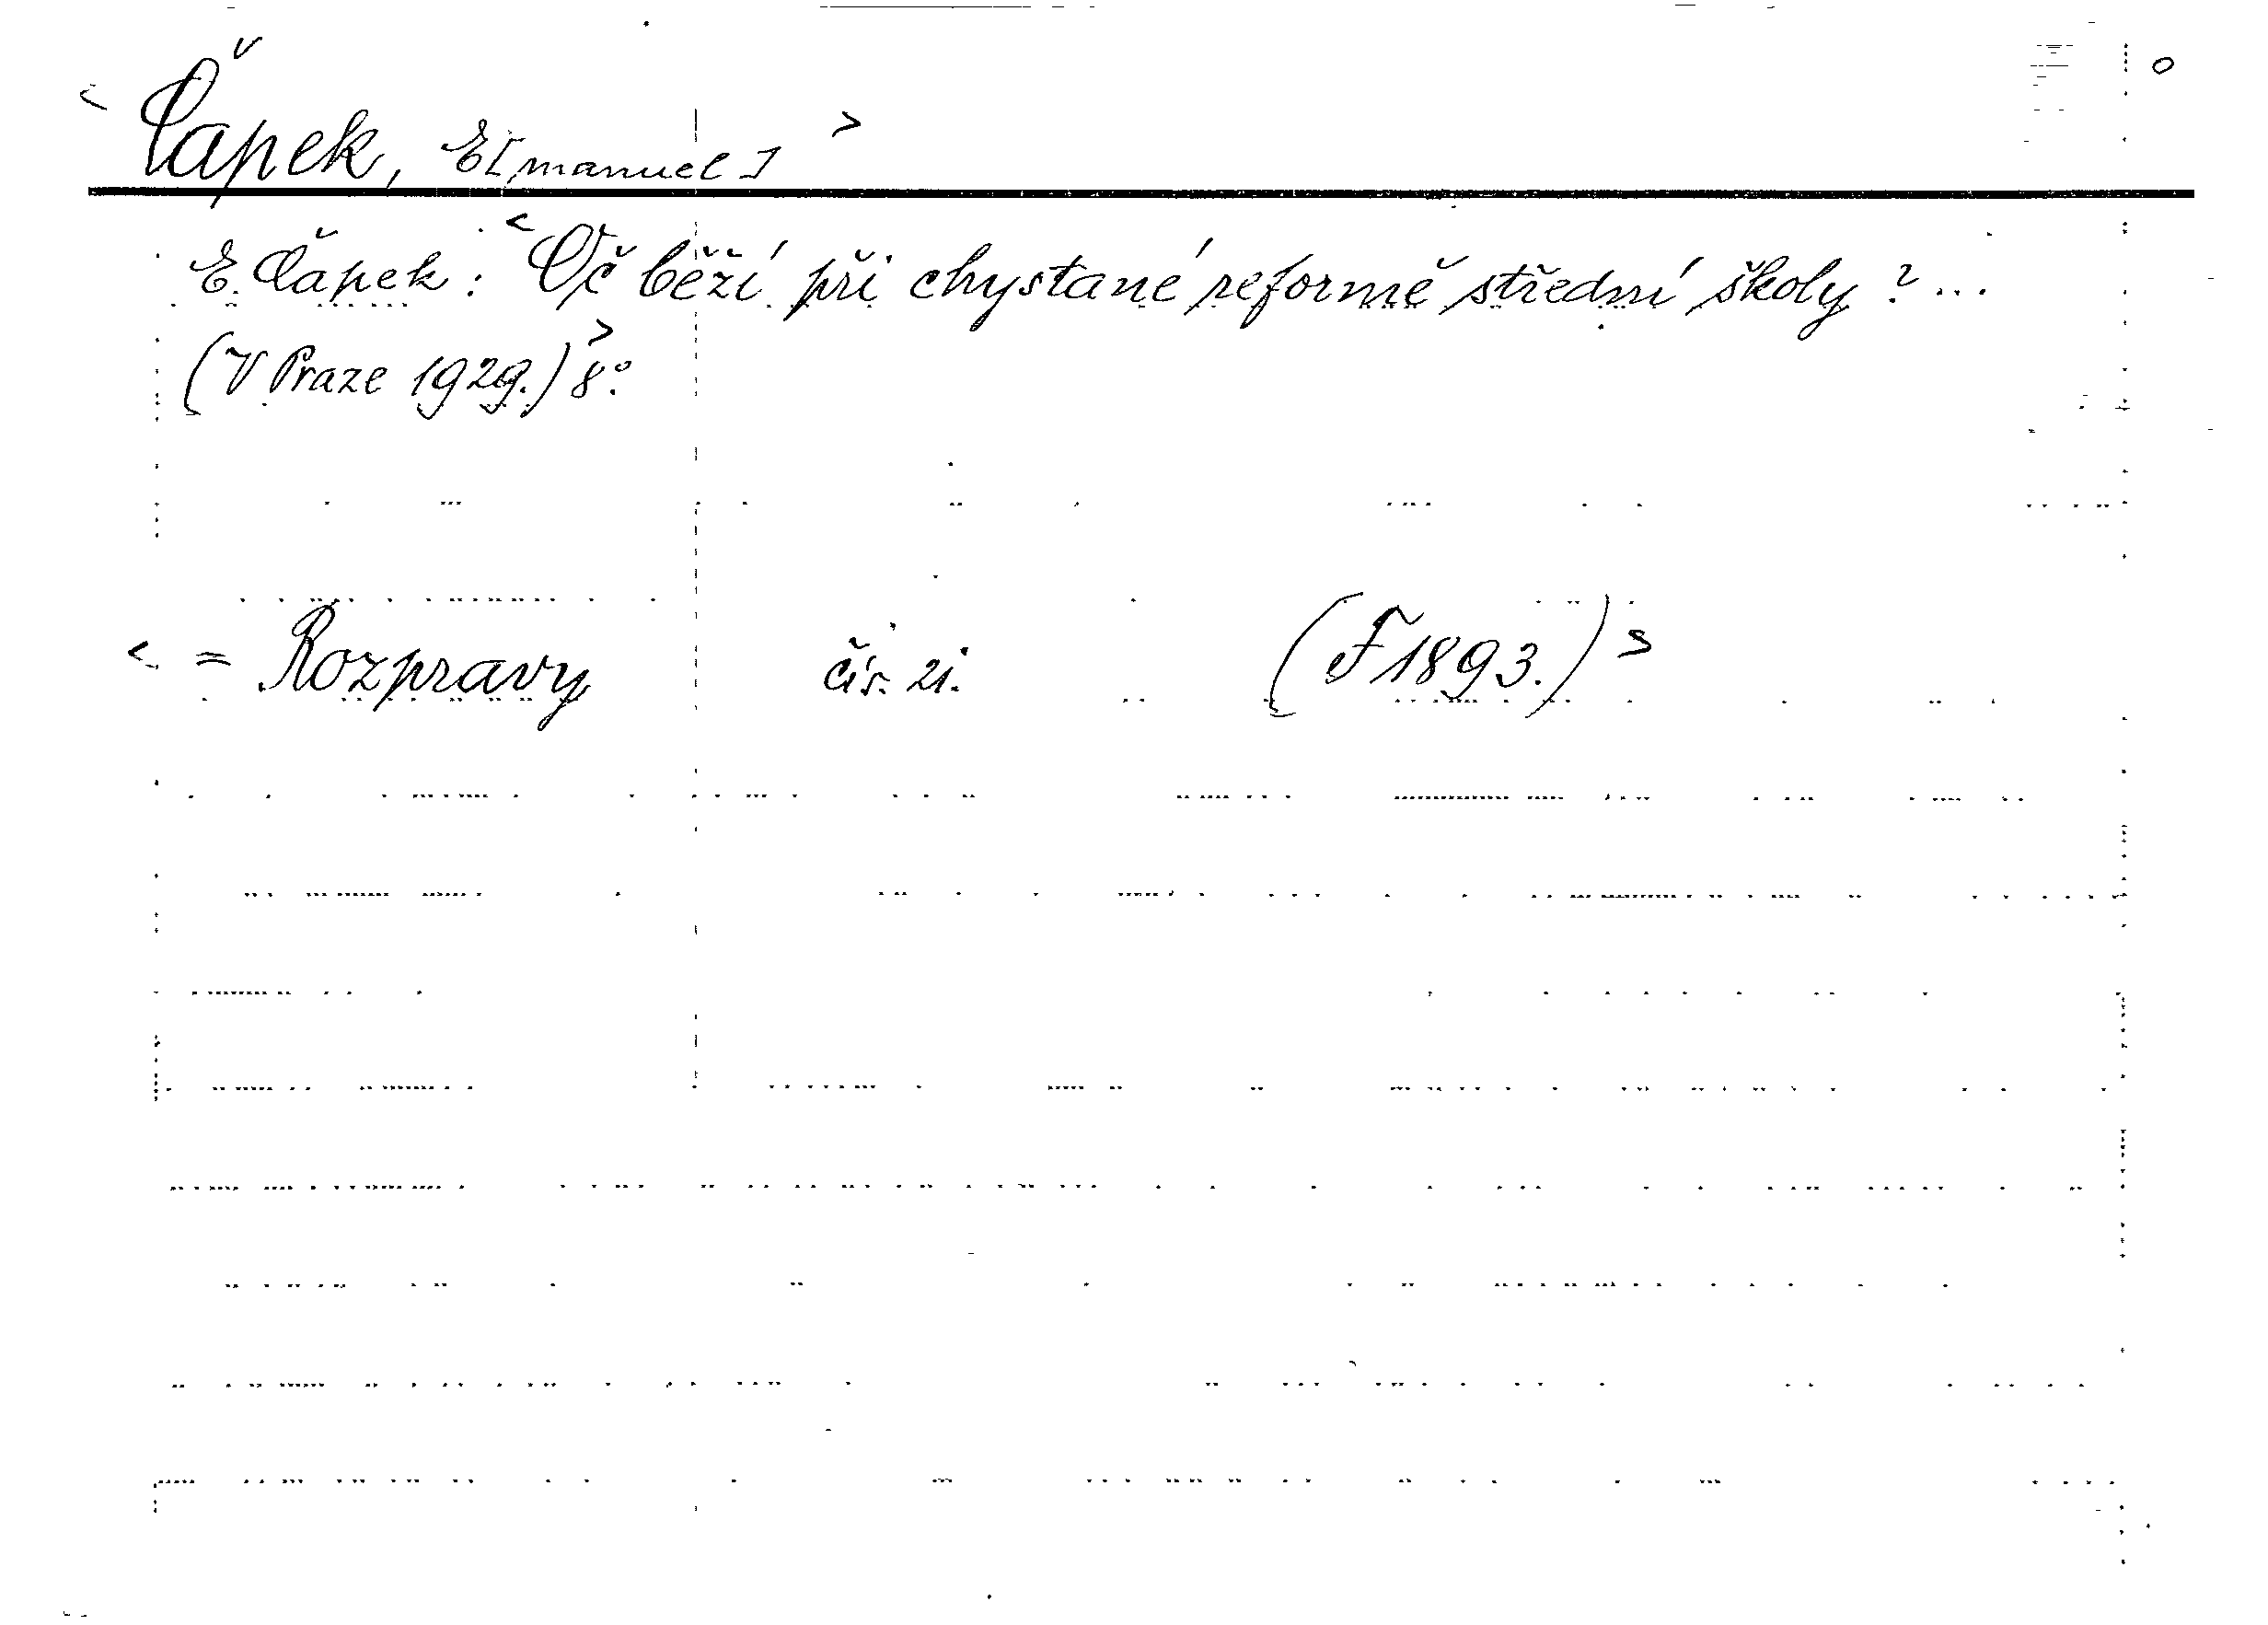 < Čapek, E[manuel] >
E. Čapek: <Oč běží při chystané reformě střední školy?...
(V Praze 1929.)> 8°.
< = Rozpravy čís. 21. (F 1893.) >